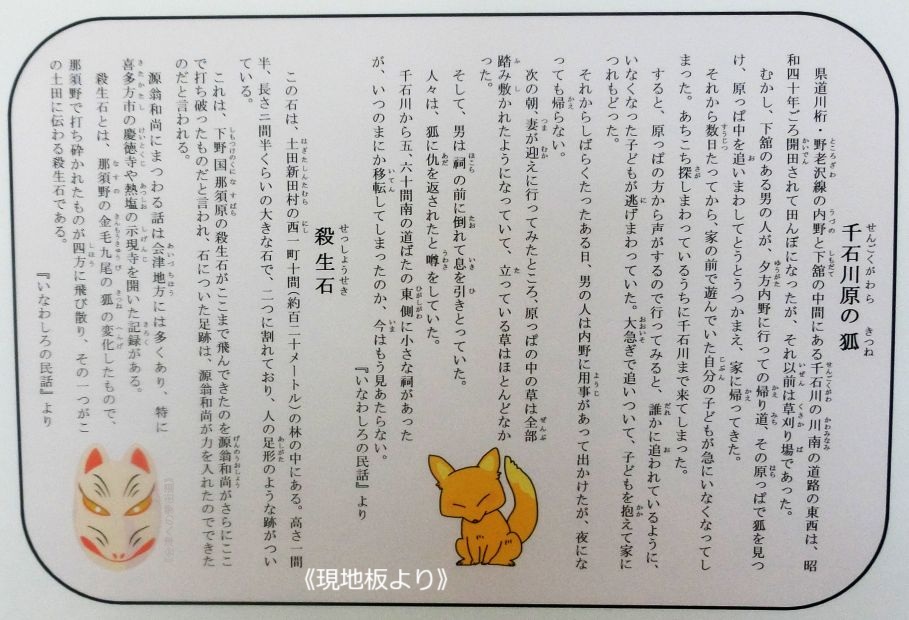 千石川原の狐
県道川桁・野老沢線の内野と下舘の中間にある千石川の川南の道路の東西は、昭
和四十年ごろ開田されて田んぼになったが、それ以前は草刈り場であった。
むかし、下舘のある男の人が、夕方内野に行っての帰り道、その原っぱで狐を見つ
け、原っぱ中を追いまわしてとうとうつかまえ、家に帰ってきた。
それから数日たってから、家の前で遊んでいた自分の子どもが急にいなくなってし
まった。あちこち探しまわっているうちに千石川まで来てしまった。
すると、原っぱの方から声がするので行ってみると、誰かに追われているように、
いなくなった子どもが逃げまわっていた。大急ぎで追いついて、子どもを抱えて家に
つれもどった。
それからしばらくたったある日、男の人は内野に用事があって出かけたが、夜にな
っても帰らない。
次の朝、妻が迎えに行ってみたところ、原っぱの中の草は全部
踏み敷かれたようになっていて、立っている草はほとんどなか
った。
そして、男は祠の前に倒れて息を引きとっていた。
人々は、狐に仇を返されたと噂をしていた。
千石川から五、六十間南の道ばたの東側に小さな祠があった
が、いつのまにか移転してしまったのか、今はもう見あたらない。
『いなわしろの民話』より
殺生石
この石は、土田新田村の西一町十間(約百二十メートル)の林の中にある。高さ一間
半、長さ二間半くらいの大きな石で、二つに割れており、人の足形のような跡がつい
ている。
これは、下野国那須原の殺生石がここまで飛んできたのを源翁和尚がさらにここ
で打ち破ったものだと言われ、石についた足跡は、源翁和尚が力を入れたのでできた
のだと言われる。
源翁和尚にまつわる話は会津地方には多くあり、特に
喜多方市の慶徳寺や熱塩の示現寺を開いた記録がある。
殺生石とは、那須野の金毛九尾の狐の変化したもので、
那須野で打ち砕かれたものが四方に飛び散り、その一つがこ
の土田に伝わる殺生石である。
『いなわしろの民話』より
《現地板より》